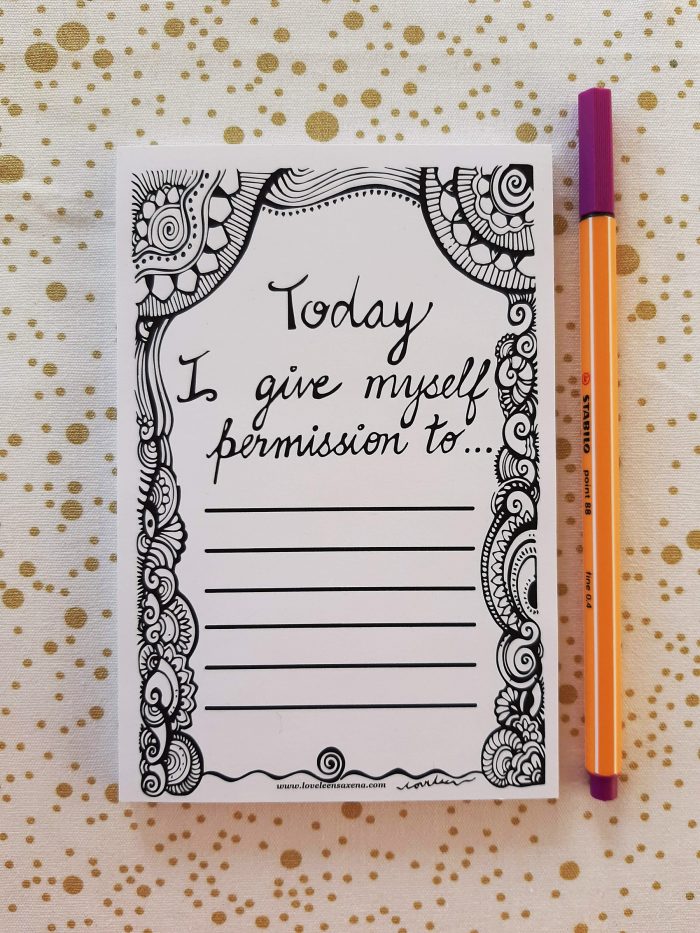 Today
I give myself
permission to...
www.loveleensaxena.com
STABILO point 88 fine 0.4